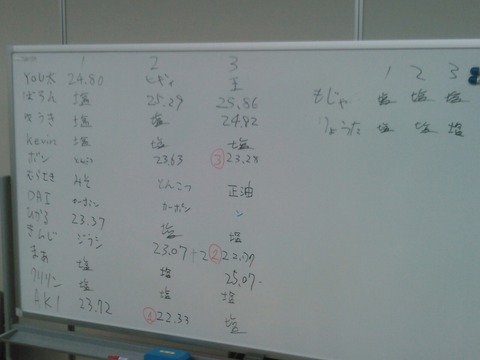 1 2 3
You太 24.80 ヒゲィ 王
ばろん 塩 25.29 25.86
ゆうき 塩 塩 24.82
Kevin 塩 塩 塩
ボン 23.63 ③23.28
むらさき みそ とんこつ 正油
DAI カーボン カーボン ン
ひかる 23.37 塩 塩
きんじ 23.07+2 ②22.77
まぁ 塩 塩 25.07
クリリン 塩 塩 塩
AKI 23.72 ①22.33 塩
1 2 3
もじゃ 塩 塩 塩
りょうた 塩 塩 塩